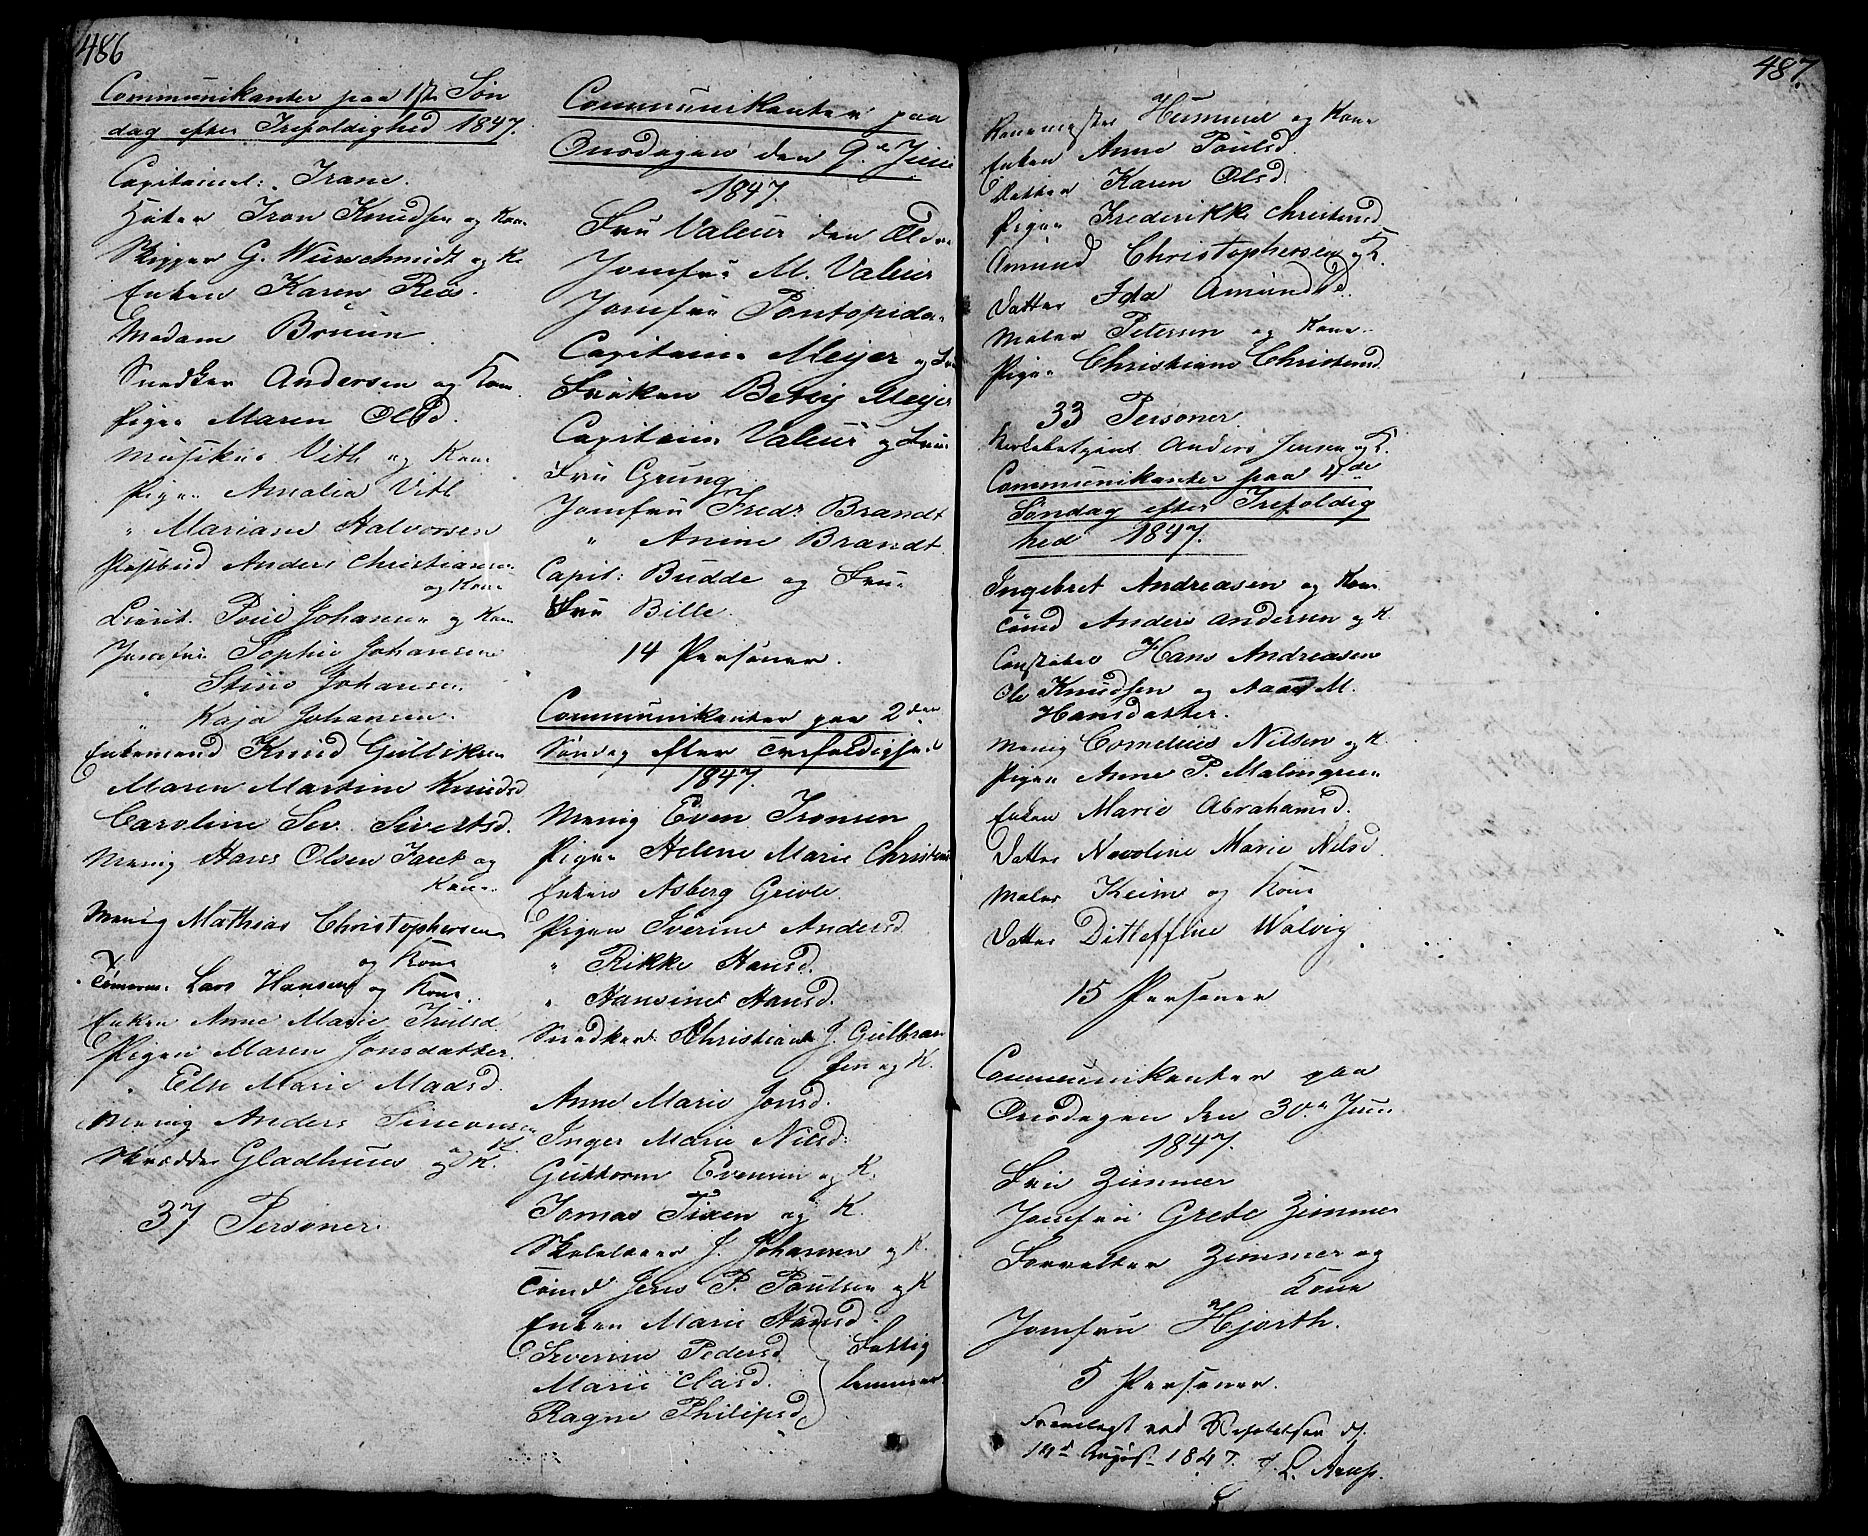 486
Communikanter paa 1ste Søn
dag efter Trefoldighed 1847.
Capitainl: Trane.
Iver Knudsen og Kone
Skipper G. Wurschmidt og K.
Enken Karen Reas.
Madam Bruun.
Snedker Andersen og Kone
Pigen Maren Olsd.
Musikus Vith og Kone
Pigen Amalia Vith
" Mariane Halvorsen
Postbud Anders Christiansen
og Kone
Lieut. Poul Johansen og Kone
Jomfru Sophie Johansen
" Stine Johansen
" Kaja Johansen.
Enkemand Knud Gulliksen
Maren Martine Knudsd
Caroline Sev. Sivertsd.
Menig Hans Olsen Taret og
Kone
Menig Mathias Christophersen
og Kone
Tømerm. Lars Hansen og Kone
Enken Anne Marie Truelsd
Pigen Maren Jonsdatter.
" Else Marie Maasd.
Menig Anders Simonsen
Skrædder Gladhuus og K.
37 Personer.
Communikanter paa
Onsdagen den 9de Juni
1847.
Fru Valeur den Ældre
Jomfru M. Valeur
Jomfru Pontopidan
Capitain Meyer og Fru
Frøken Betsy Meyer
Capitain Valeur og Frue
Fru Grung
Jomfru Fredr. Brandt
" Anine Brandt
Capit: Budde og Frue
Fru Bille.
14 Personer.
Communikanter paa 2den
Søndag efter Trefoldighed
1847.
Menig Even Tronsen
Pigen Helene Marie Christens
Enken Asberg Grivle.
Pigen Iverine Andersd.
" Rikke Hansd.
" Hansine Hansd.
Snedker Christian J. Gulbran
sen og K.
Anne Marie Jonsd.
Inger Marie Nilsd:
Guttorm Evensen og K.
Tomas Tixen og K.
Skolelærer J. Johansen og K.
Tømd Jens P. Paulsen og K
Enken Marie Hansd.
Severine Pedersd. Fattig
Marie Claisd. lemmer
Ragne Philipsd
487.
Hummel og Kone
Enken Anne Poulsd.
Datter Karen Olsd.
Pigen Frederikke Christensd
Amund Christophersen og K.
Datter Ida Amundsd.
Maler Petersen og Kone
Pigen Christiane Christensd
33 Personer.
Anders Jensen og K.
Communikanter paa 4de
Søndag efter Trefoldig
hed 1847.
Ingebret Andreasen og Kone
Tømd Anders Andersen og K.
Constabel Hans Andreasen
Ole Knudsen og Aase M.
Hansdatter.
Menig Cornelius Nilsen og K.
Pigen Anne P. Malmgreen
Enken Marie Abrahamsd.
Datter Nicoline Marie Nilsd.
Maler Keim og Kone
Datter Ditleffine Walvig
15 Personer
Communikanter paa
Onsdagen den 30te Juni
1847.
Fru Zimmer
Jomfru Grete Zimmer
Forvalter Zimmer og
Kone
Jomfru Hjorth.
5 Personer.
Fremlagt ved Visitatsen d.
14de August 1847. J. L. Arup.